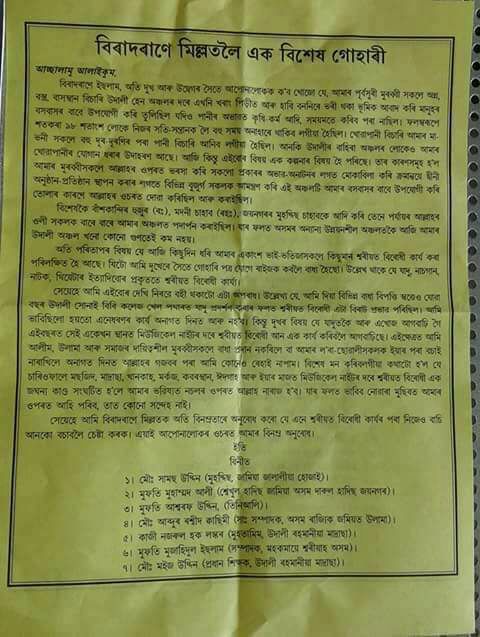 বিৰাদৰাণে মিল্লতলৈ এক বিশেষ গোহাৰী
আচ্ছালামু আলাইকুম,
বিৰাদৰাণে ইছলাম, অতি দুখ আৰু উদ্বেগৰ সৈতে আপোনালোকক ক'ব খোজো যে, আমাৰ পূৰ্বসূৰী মুৰব্বী সকলে অন্ন,
বস্ত্ৰ, বাসস্থান বিচাৰি উদালী হেন অঞ্চলৰ দৰে এখনি খৰাং পিড়ীত আৰু হাবি বননিৰে ভৰী থকা ভূমিক আবাদ কৰি মানুহৰ
বসবাসৰ বাবে উপযোগী কৰি তুলিছিল যদিও পানীৰ অভাৱত কৃষি কৰ্ম আদি, সময়মতে কৰিব পৰা নাছিল। ফলস্বৰূপে
শতকৰা ৯৮ শতাংশ লোকে নিজৰ সতি-সন্তানক লৈ বহু সময় অনাহাৰে থাকিব লগীয়া হৈছিল। খোৱাপানী বিচাৰি আমাৰ মা-
ভনী সকলে বহু দূৰ-দূৰণিৰ পৰা পানী বিচাৰি আনিব লগীয়া হৈছিল। আনকি উদালীৰ বাহিৰা অঞ্চলৰ লোকেও আমাৰ
খোৱাপানীৰ যোগান ধৰাৰ উদাহৰণ আছে। আজি কিন্তু এইবোৰ বিষয় এক কল্পনাৰ বিষয় হৈ পৰিছে। তাৰ কাৰণসমূহ হ'ল
আমাৰ মুৰব্বীসকলে আল্লাহৰ ওপৰত ভৰসা কৰি সকলো প্ৰকাৰৰ অভাৱ-অনাটনৰ লগত মোকাবিলা কৰি ক্ৰমান্বয়ে দ্বীনী
অনুষ্ঠান-প্ৰতিষ্ঠান স্থাপন কৰাৰ লগতে বিভিন্ন বুজুৰ্গ সকলক আমন্ত্ৰণ কৰি এই অঞ্চলটি আমাৰ বসবাসৰ বাবে উপযোগী কৰি
তোলাৰ কাৰণে আল্লাহৰ ওচৰত দোৱা কৰিছিল আৰু কৰাইছিল।
বিশেষকৈ বাঁশকান্দিৰ হুজুৰ (ৰঃ), মদনী চাহাব (ৰহঃ), জয়নগৰৰ মুহদ্দিছ চাহাবকে আদি কৰি তেনে পৰ্যায়ৰ আল্লাহৰ
ওলী সকলক বাৰে বাৰে আমাৰ অঞ্চলত পদাৰ্পন কৰাইছিল। যাৰ ফলত অসমৰ অন্যান্য উন্নয়নশীল অঞ্চলতকৈ আজি আমাৰ
উদালী অঞ্চল খনো কোনো গুণতেই কম নহয়।
অতি পৰিতাপৰ বিষয় যে আজি কিছুদিন ধৰি আমাৰ একাংশ ভাই-ভতিজাসকলে কিছুমান শ্বৰীয়ত বিৰোধী কাৰ্য কৰা
পৰিলক্ষিত হৈ আছে। যিটো আমি দুখেৰে সৈতে গোহাৰি পত্ৰ যোগে ৰাইজক কবলৈ বাধ্য হৈছো। উল্লেখ থাকে যে যাদু, নাচগান,
নাটক, থিয়েটাৰ ইত্যাদিবোৰ প্ৰকৃততে শ্বৰীয়ত বিৰোধী কাৰ্য।
সেয়েহে আমি এইবোৰ দেখি নিৰৱে বহী থকাটো এটা অপৰাধ। উল্লেখ্য যে, আমি দিয়া বিভিন্ন বাধা বিপত্তি স্বত্বেও যোৱা
বছৰ উদালী সোনাই বিৰি কলেজ খেল পথাৰত যাদু প্ৰদৰ্শন কৰাৰ ফলত শ্বৰীয়ত বিৰোধী এটা বিৰাট প্ৰভাৱ পৰিছিল। আমি
ভাবিছিলো হয়তো এনেধৰণৰ কাৰ্য অনাগত দিনত আৰু নহ'ব। কিন্তু দুখৰ বিষয় যে যাদুতকৈ আৰু এখোজ আগবাঢ়ি গৈ
এইবছৰত সেই একেখন স্থানত মিউজিকেল নাইটৰ দৰে শ্বৰীয়ত বিৰোধী আন এক কাৰ্য কৰিবলৈ আগবাঢ়িছে। এইক্ষেত্ৰত আমি
আলীম, উলামা আৰু সমাজৰ দায়িত্বশীল মুৰব্বীসকলে বাধা প্ৰদান নকৰিলে বা আমাৰ ল'ৰা-ছোৱালীসকলক ইয়াৰ পৰা বচাই
নাৰাখিলে অনাগত দিনত আল্লাহৰ গজবৰ পৰা আমি কোনেও ৰেহাই নাপাম। বিশেষ মন কৰিবলগীয়া কথাটো হ'ল যে
চাৰিওফালে মছজিদ, মাদ্ৰাছা, খানকাহ, মৰ্কজ, কবৰস্থান, ঈদগাহ আৰু ইয়াৰ মাজত মিউজিকেল নাইটৰ দৰে শ্বৰীয়ত বিৰোধী এক
জঘন্য কাণ্ড সংঘটিত হ'লে আমাৰ ভৱিষ্যত নচলৰ ওপৰত আল্লাহ নাৰাজ হ'ব। যাৰ ফলত ভাবিব নোৱাৰা মুছিবত আমাৰ
ওপৰত আহি পৰিব, তাত কোনো সন্দেহ নাই।
সেয়েহে আমি বিৰাদৰাণে মিল্লতক অতি বিনম্ৰতাৰে অনুৰোধ কৰো যে এনে শ্বৰীয়ত বিৰোধী কাৰ্যৰ পৰা নিজেও বাচি
আনকো বচাবলৈ চেষ্টা কৰক। এয়াই আপোনালোকৰ ওচৰত আমাৰ বিনম্ৰ অনুৰোধ।
ইতি
বিনীত
১। মৌঃ সামছ উদ্দিন (মুহদ্দিছ, জামিয়া জালালীয়া হোজাই)।
২। মুফতি মুহাম্মদ আলী (শ্বেখুল হাদিছ জামিয়া অসম দাৰুল হাদিছ জয়নগৰ)।
৩। মুফতি আশ্বৰফ উদ্দিন, (তিনিআলি)।
৪। মৌঃ আব্দুৰ ৰশ্বীদ কাছিমী (সাঃ সম্পাদক, অসম ৰাজ্যিক জমিয়ত উলামা)।
৫। কাজী নজৰুল হক লস্কৰ (মুহতামিম, উদালী ৰহমানীয়া মাদ্ৰাছা)।
৬। মুফতি মুজাহিদুল ইছলাম (সম্পাদক, মহকামায়ে শ্বৰীয়াহ অসম)।
৭। মৌঃ মইজ উদ্দিন (প্ৰধান শিক্ষক, উদালী ৰহমানীয়া মাদ্ৰাছা)।